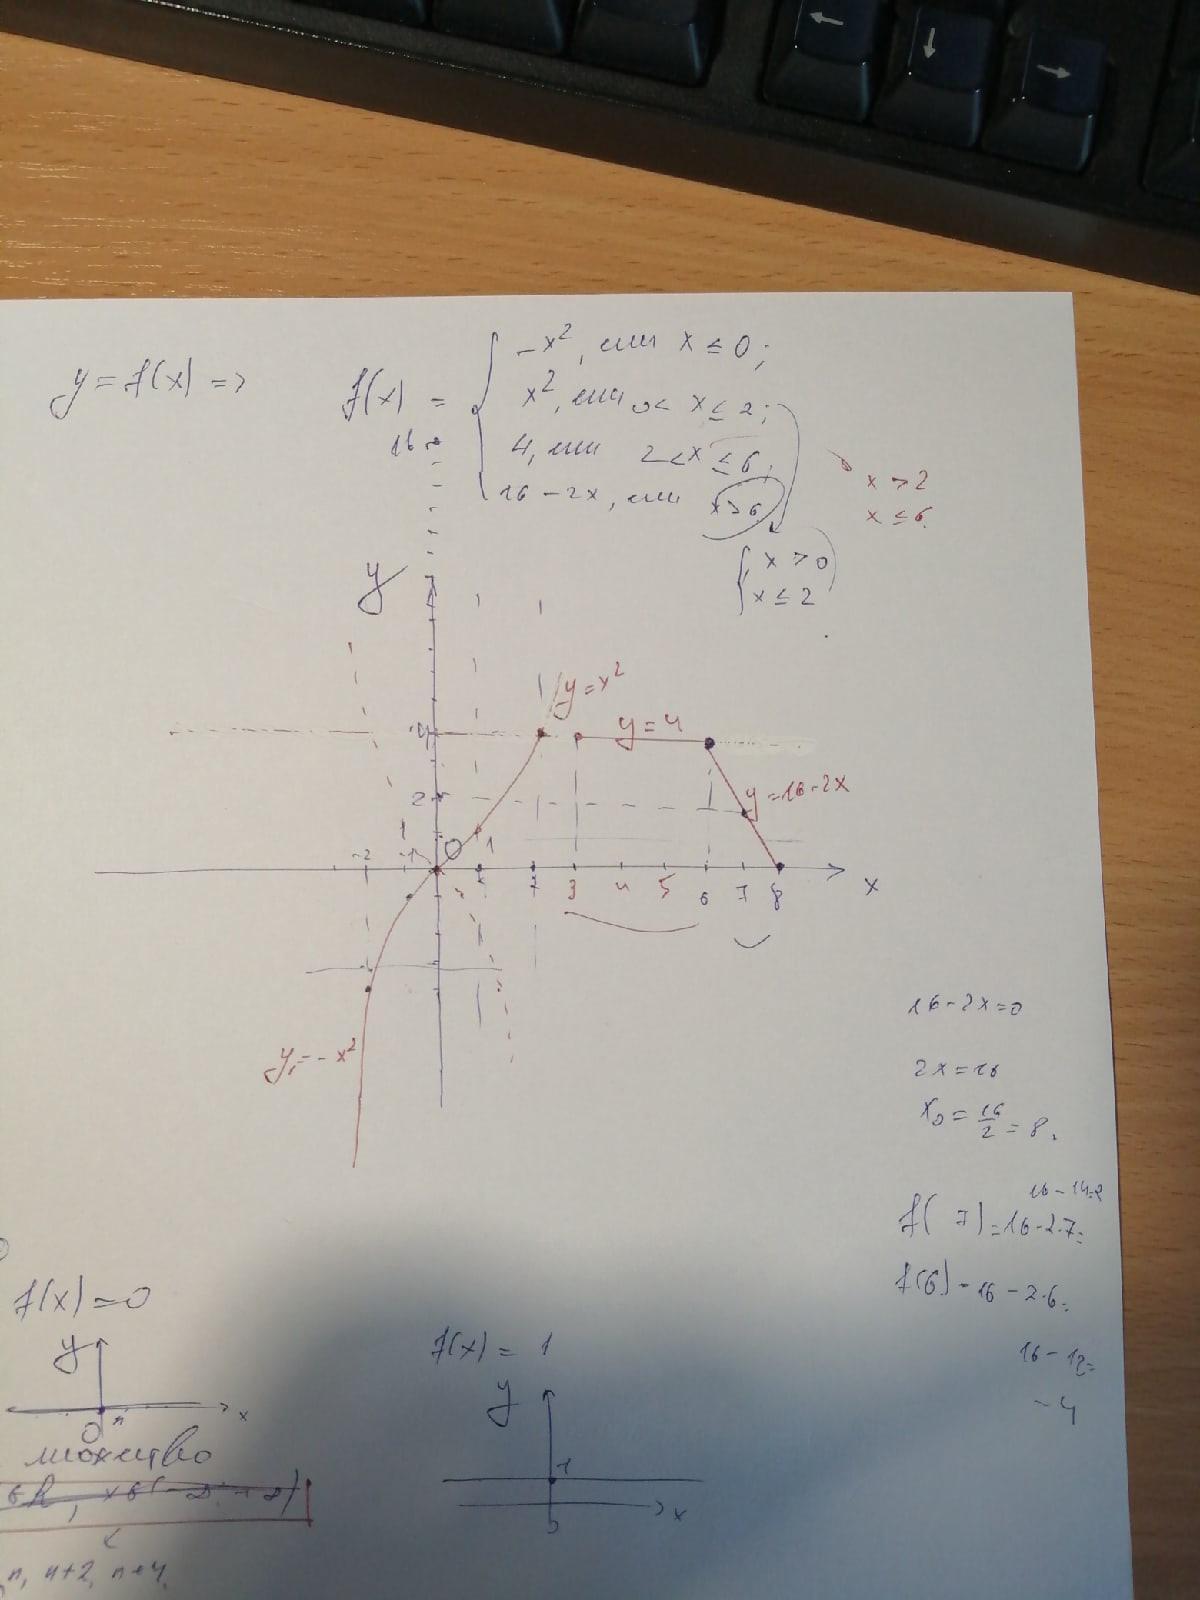 y = f(x) =>
f(x) =
-x², если x ≤ 0;
x², если 0 < x ≤ 2;
4, если 2 < x ≤ 6,
16 - 2x, если x > 6
x > 2
x ≤ 6
x > 0
x ≤ 2
16
y
y = x²
4
y = 4
y = 16-2x
2
1
-2 -1 0 1
1 2 3 4 5 6 7 8
x
y = -x²
16-2x=0
2x=16
x₀ = 16/2 = 8.
16-14=2
f(7) = 16-2·7=
f(6) = 16 - 2·6=
16 - 12=
-4
f(x) = 0
y
x
0
множество
n, n+2, n+4,
f(x) = 1
y
1
x